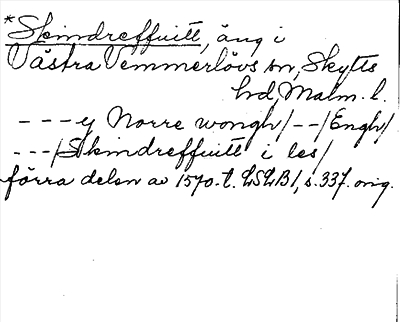 *Skindreffuitt, äng i
Västra Vemmerlövs sn, Skytts
hd, Malm. l.
---y Norre wongh/--/Engh/
---/Skindreffuitt i les/
förra delen av 1570-t. LSLB1, s. 337. orig.